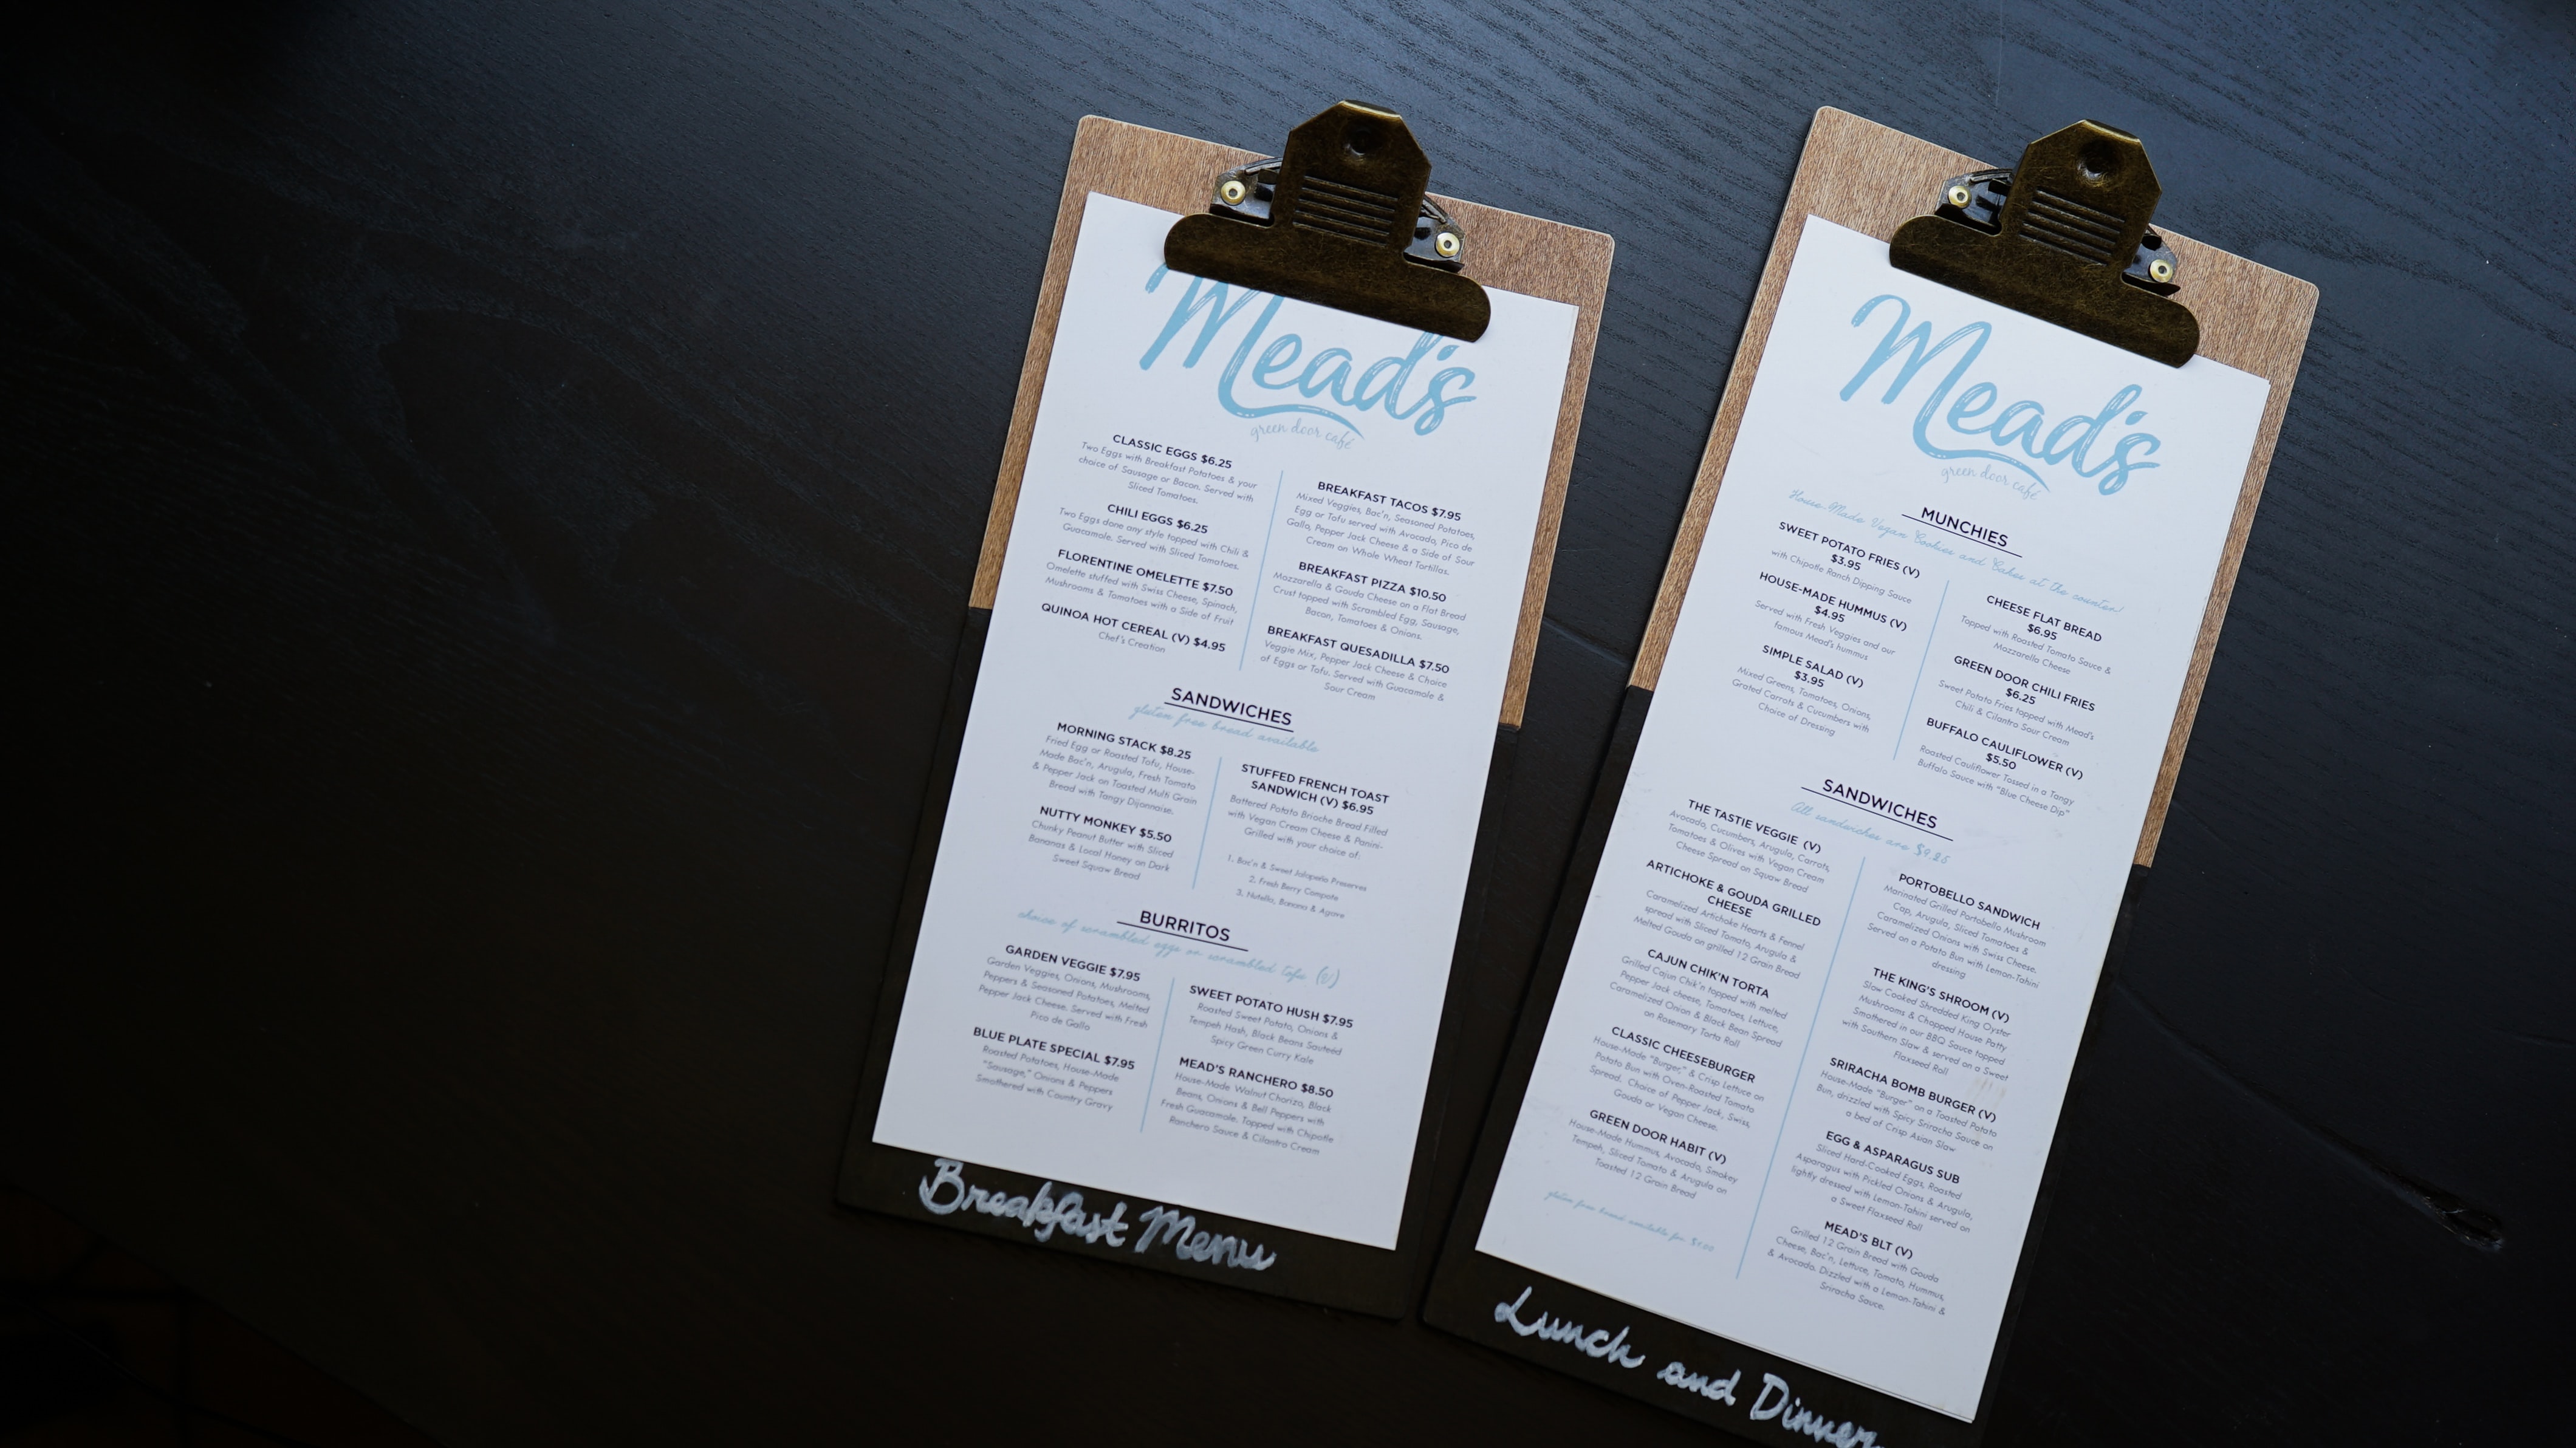 Mead's
green door café
CLASSIC EGGS $6.25
Two Eggs with Breakfast Potatoes & your
choice of Sausage or Bacon. Served with
Sliced Tomatoes.
CHILI EGGS $6.25
Two Eggs done any style topped with Chili &
Guacamole. Served with Sliced Tomatoes.
FLORENTINE OMELETTE $7.50
Omelette stuffed with Swiss Cheese, Spinach,
Mushrooms & Tomatoes with a Side of Fruit
QUINOA HOT CEREAL (V) $4.95
Chef's Creation
BREAKFAST TACOS $7.95
Mixed Veggies, Bac'n, Seasoned Potatoes,
Egg or Tofu served with Avocado, Pico de
Gallo, Pepper Jack Cheese & a Side of Sour
Cream on Whole Wheat Tortillas.
BREAKFAST PIZZA $10.50
Mozzarella & Gouda Cheese on a Flat Bread
Crust topped with Scrambled Egg, Sausage,
Bacon, Tomatoes & Onions.
BREAKFAST QUESADILLA $7.50
Veggie Mix, Pepper Jack Cheese & Choice
of Eggs or Tofu. Served with Guacamole &
Sour Cream
SANDWICHES
gluten free bread available
MORNING STACK $8.25
Fried Egg or Roasted Tofu, House-
Made Bac'n, Arugula, Fresh Tomato
& Pepper Jack on Toasted Multi Grain
Bread with Tangy Dijonnaise.
NUTTY MONKEY $5.50
Chunky Peanut Butter with Sliced
Bananas & Local Honey on Dark
Sweet Squaw Bread
STUFFED FRENCH TOAST
SANDWICH (V) $6.95
Battered Potato Brioche Bread Filled
with Vegan Cream Cheese & Panini-
Grilled with your choice of:
1. Bac'n & Sweet Jalapeño Preserves
2. Fresh Berry Compote
3. Nutella, Banana & Agave
BURRITOS
choice of scrambled eggs or scrambled tofu (v)
GARDEN VEGGIE $7.95
Garden Veggies, Onions, Mushrooms,
Peppers & Seasoned Potatoes, Melted
Pepper Jack Cheese. Served with Fresh
Pico de Gallo
BLUE PLATE SPECIAL $7.95
Roasted Potatoes, House-Made
"Sausage," Onions & Peppers
Smothered with Country Gravy
SWEET POTATO HUSH $7.95
Roasted Sweet Potato, Onions &
Tempeh Hash, Black Beans Sauteéd
Spicy Green Curry Kale
MEAD'S RANCHERO $8.50
House-Made Walnut Chorizo, Black
Beans, Onions & Bell Peppers with
Fresh Guacamole. Topped with Chipotle
Ranchero Sauce & Cilantro Cream
Breakfast Menu
Mead's
green door café
MUNCHIES
House-Made Vegan Cookies and Cakes at the counter
SWEET POTATO FRIES (V)
$3.95
with Chipotle Ranch Dipping Sauce
HOUSE-MADE HUMMUS (V)
$4.95
Served with Fresh Veggies and our
famous Mead's hummus
SIMPLE SALAD (V)
$3.95
Mixed Greens, Tomatoes, Onions,
Grated Carrots & Cucumbers with
Choice of Dressing
CHEESE FLAT BREAD
$6.95
Topped with Roasted Tomato Sauce &
Mozzarella Cheese
GREEN DOOR CHILI FRIES
$6.25
Sweet Potato Fries topped with Mead's
Chili & Cilantro Sour Cream
BUFFALO CAULIFLOWER (V)
$5.50
Roasted Cauliflower Tossed in a Tangy
Buffalo Sauce with "Blue Cheese Dip"
SANDWICHES
All sandwiches are
THE TASTIE VEGGIE (V)
Avocado, Cucumbers, Arugula, Carrots,
Tomatoes & Olives with Vegan Cream
Cheese Spread on Squaw Bread
ARTICHOKE & GOUDA GRILLED
CHEESE
Caramelized Artichoke Hearts & Fennel
spread with Sliced Tomato, Arugula &
Melted Gouda on grilled 12 Grain Bread
CAJUN CHIK'N TORTA
Grilled Cajun Chik'n topped with melted
Pepper Jack cheese, Tomatoes, Lettuce,
Caramelized Onion & Black Bean Spread
on Rosemary Torta Roll
CLASSIC CHEESEBURGER
House-Made "Burger," & Crisp Lettuce on
Potato Bun with Oven-Roasted Tomato
Spread. Choice of Pepper Jack, Swiss,
Gouda or Vegan Cheese.
GREEN DOOR HABIT (V)
House-Made Hummus, Avocado, Smokey
Tempeh, Sliced Tomato & Arugula on
Toasted 12 Grain Bread
gluten free bread available for $1.00
PORTOBELLO SANDWICH
Marinated Grilled Portobello Mushroom
Cap, Arugula, Sliced Tomatoes &
Caramelized Onions with Swiss Cheese.
Served on a Potato Bun with Lemon-Tahini
dressing
THE KING'S SHROOM (V)
Slow Cooked Shredded King Oyster
Mushrooms & Chopped House Patty
Smothered in our BBQ Sauce topped
with Southern Slaw & served on a Sweet
Flaxseed Roll
SRIRACHA BOMB BURGER (V)
House-Made "Burger" on a Toasted Potato
Bun, drizzled with Spicy Sriracha Sauce on
a bed of Crisp Asian Slaw
EGG & ASPARAGUS SUB
Sliced Hard-Cooked Eggs, Roasted
Asparagus with Pickled Onions & Arugula,
lightly dressed with Lemon-Tahini served on
a Sweet Flaxseed Roll
MEAD'S BLT (V)
Grilled 12 Grain Bread with Gouda
Cheese, Bac'n, Lettuce, Tomato, Hummus,
& Avocado. Dizzled with a Lemon-Tahini &
Sriracha Sauce.
Lunch and Dinner